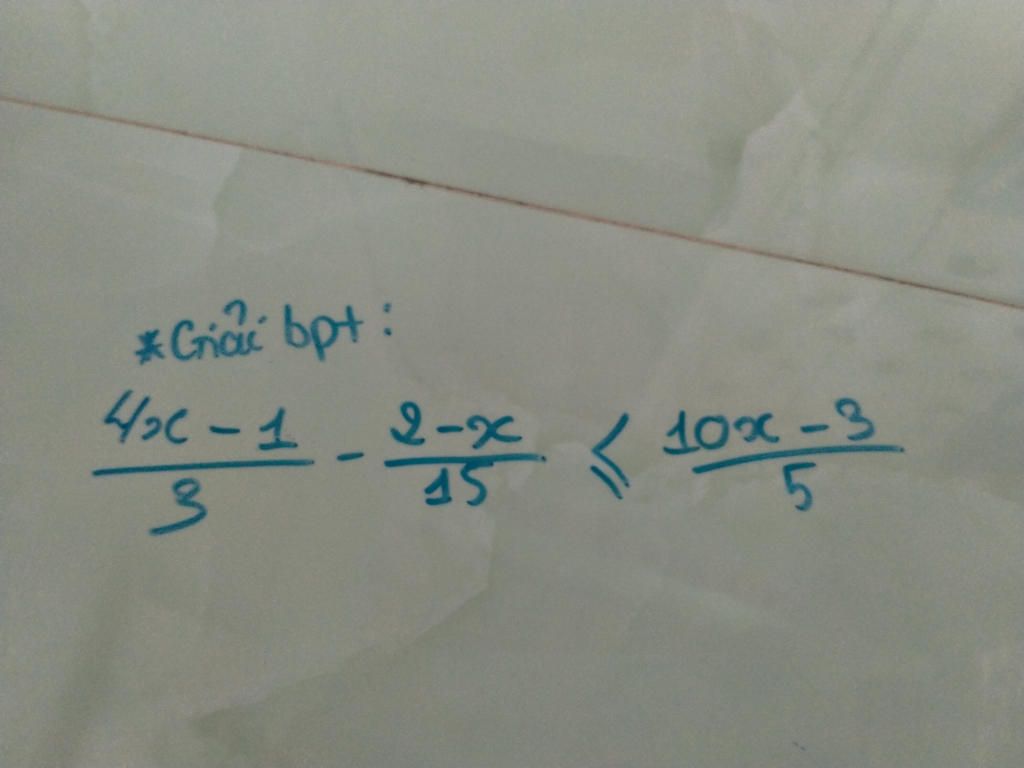 *Giải bpt:
\frac{4x-1}{3} - \frac{2-x}{15} ≤ \frac{10x-3}{5}